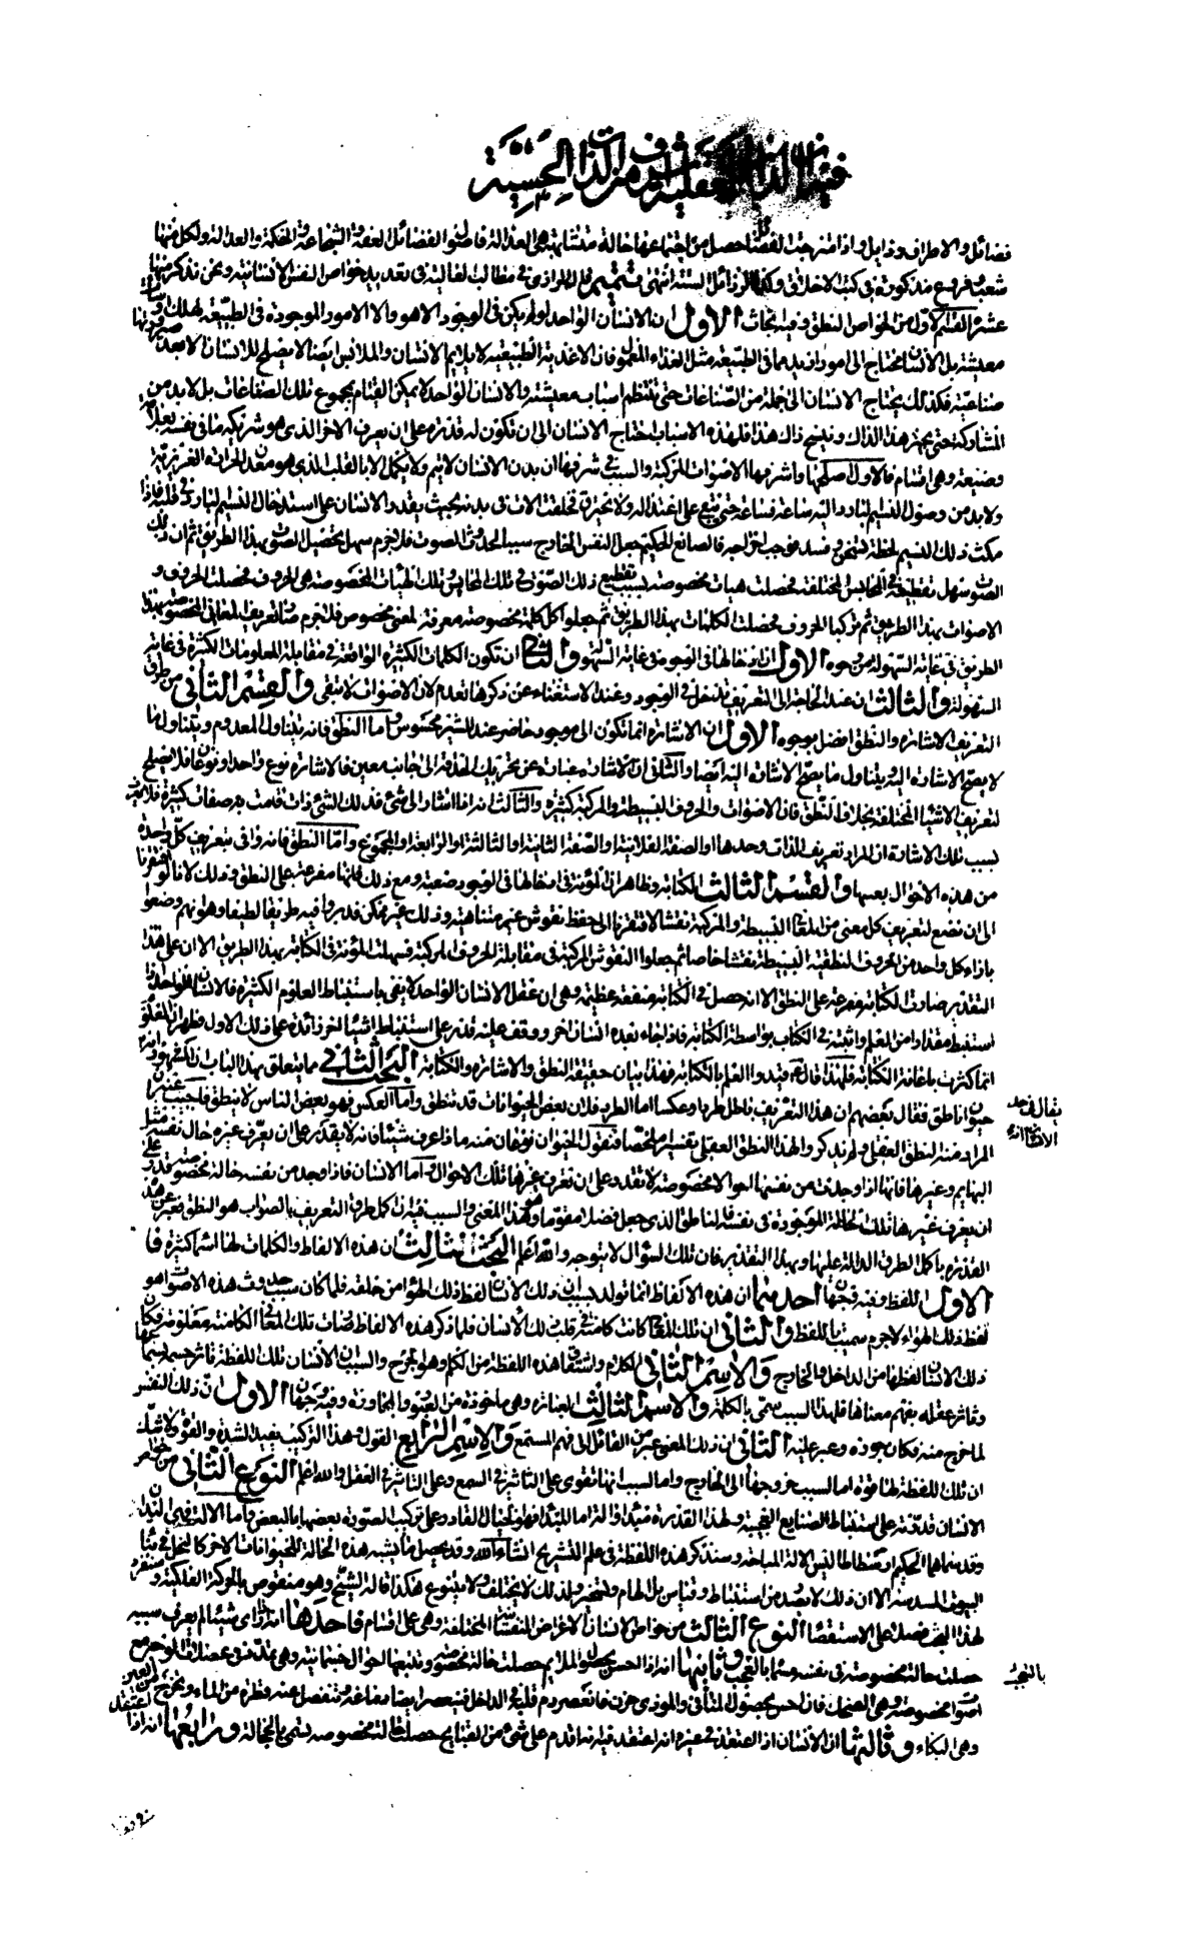 في ان اللذات العقلية اشرف من اللذات الحسية
فضائل والاطراف رذايل واذا امتزجت الفضائل حصل من اجتماعها حالة متشابهة هى العدالة فاصول الفضائل العفة والشجاعة والحكمة والعدالة ولكل منها
شعب وفروع مذكورة فى كتب الاخلاق وكذا الرذائل الستة انتهى تتميم قال الرازى فى مطالب العاليه فى تعديد خواص النفس الانسانيه ونحن نذكر منها
عشرة القسم الاول من الخواص النطق وفيه ابحاث الاول ان الانسان الواحد لو لم يكن فى الوجود الا هو والا الامور الموجودة فى الطبيعة لهلك او ساءت
معيشته بل الانسان محتاج الى امور ازيد مما فى الطبيعه مثل الغذاء المعمول فان الاغذية الطبيعيه لا يلايم الانسان والملابس ايضا لا يصلح للانسان الا بعد صيرورتها
صناعية فكذلك يحتاج الانسان الى جملة من الصناعات حتى تنتظم اسباب معيشته والانسان الواحد لا يمكن القيام بمجموع تلك الصناعات بل لا بد من
المشاركة حتى يخبز هذا لذاك وينسج ذاك لهذا فلهذه الاسباب احتاج الانسان الى ان تكون له قدرة على ان يعرف الاخر الذى هو شريكه ما فى نفسه بعلامة
وضيعة وهى اقسام فالاول اصلحها واشرفها الاصوات المركبة والسبب فى شرفها ان بدن الانسان لا يتم ولا يكمل الا بالقلب الذى هو معدن الحرارة الغريزية
ولا بد من وصول النسيم البارد اليه ساعة فساعة حتى يبقى على اعتداله ولا يحترق فخلقت الات فى بدنه بحيث يقدر الانسان على استدخال النسيم البارد فى قلبه فاذا
مكث ذلك النسيم لحظة تسخن وفسد فوجب اخراجه فالصانع الحكيم جعل النفس الخارج سببا لحدوث الصوت فلا جرم سهل تحصيل الصوت بهذا الطريق ثم ان ذلك
الصوت سهل تقطيعه فى المحابس المختلفة فحصلت هيات مخصوصة بسبب تقطيع ذلك الصوت فى تلك المحابس وتلك الهيئات المخصوصه هى الحروف فحصلت الحروف و
الاصوات بهذا الطريق ثم ركبوا الحروف فحصلت الكلمات بهذا الطريق ثم جعلوا كل كلمة مخصوصة معرفة لمعنى مخصوص فلا جرم صار تعريف المعانى المخصوصة بهذا
الطريق فى غاية السهولة من وجوه الاول ان ادخالها فى الوجود فى غاية السهولة والثانى ان تكون الكلمات الكثيرة الواقعة فى مقابلة المعلومات الكثيرة فى غاية
السهولة والثالث ان عند الحاجة الى التعريف تدخل فى الوجود وعند الاستغناء عن ذكرها تعدم لان الاصوات لا تبقى والقسم الثانى من طرق
التعريف الاشارة والنطق افضل بوجوه الاول ان الاشارة انما تكون الى موجود حاضر عند المشير محسوس واما النطق فانه يتناول المعدوم ويتناول ما
لا يصح الاشارة اليه ويتناول ما يصح الاشارة اليه ايضا والثانى ان الاشارة عبارة عن تحريك الحدقة الى جانب معين فالاشارة نوع واحد او نوعان فلا يصلح
لتعريف الاشياء المختلفة بخلاف النطق فان الاصوات والحروف البسيطة والمركبة كثيرة والثالث انه اذا اشار الى شئ فذلك الشئ ذات قامت به صفات كثيرة فلا يعرف
بسبب تلك الاشارة ان المراد تعريف الذات وحدها او الصفة الفلانية او الصفة الثانية او الثالثة او الرابعة او المجموع واما النطق فانه واف بتعريف كل واحدة
من هذه الاحوال بعينها والقسم الثالث الكتابة وظاهر ان المؤنة فى ادخالها فى الوجود صعبة ومع ذلك فانها مفرعة على النطق وذلك لانا لو افتقرنا
الى ان نضع لتعريف كل معنى من المعانى البسيطة والمركبة نقشا لافتقرنا الى حفظ نقوش غير متناهية وذلك غير ممكن فدبروا فيه طريقا لطيفا وهو انهم وضعوا
بازاء كل واحد من الحروف النطقية البسيطة نقشا خاصا ثم جعلوا النقوش المركبة فى مقابلة الحروف المركبة فسهلت المؤنة فى الكتابة بهذا الطريق الا ان على هذا
التقدير صارت الكتابة مفرعة على النطق الا انه حصل فى الكتابة منفعة عظيمة وهى ان عقل الانسان الواحد لا يفى باستنباط العلوم الكثيرة فالانسان الواحد اذا
استنبط مقدارا من العلم واثبته فى الكتاب بواسطة الكتابة فاذا جاء بعده انسان اخر ووقف عليه قدر على استنباط اشياء اخر زائدة على ذلك الاول فظهر ان العلوم
انما كثرت باعانة الكتابة فلهذا قال ع قيدوا العلم بالكتابة فهذا بيان حقيقة النطق والاشارة والكتابة البحث الثانى مما يتعلق بهذا الباب ان المشهور انه
يقال فى حد الانسان انه
حيوان ناطق فقال بعضهم ان هذا التعريف باطل طردا وعكسا اما الطرد فلان بعض الحيوانات قد تنطق واما العكس فهو بعض الناس لا ينطق فاجيب عنه بان
المراد منه النطق العقلى ولم يذكروا لهذا النطق العقلى تفسيرا ملخصا فنقول الحيوان نوعان منه ما اذا عرف شيئا فانه لا يقدر على ان يعرف غيره حال نفسه مثل
البهايم وغيرها فانها اذا وجدت من نفسها احوالا مخصوصة لا تقدر على ان تعرف غيرها تلك الاحوال واما الانسان فاذا وجد من نفسه حالة مخصوصة قدر على
ان يعرف غيره تلك الحالة الموجودة فى نفسه فالناطق الذى جعل فصلا مقوما هو هذا المعنى والسبب فيه ان اكمل طرق التعريف بالصواب هو النطق فعبر عن هذه
القدرة باكمل الطرق الدالة عليها وبهذا التقدير فان تلك السؤال لا يتوجه والله اعلم البحث الثالث ان هذه الالفاظ والكلمات لها اسماء كثيرة فا
الاول اللفظ وفيه وجهان احدهما ان هذه الالفاظ انما تولد بسبب ان ذلك الانسان لفظ ذلك الهواء من حلقه فلما كان سبب حدوث هذه الاصوات هو
لفظ ذلك الهواء لا جرم سميت باللفظ والثانى ان تلك المعانى كانت كامنة فى قلب ذلك الانسان فلما ذكر هذه الالفاظ صارت تلك المعانى الكامنة معلومة فكان
ذلك الانسان لفظها من الداخل والخارج والاسم الثانى الكلام واشتقاق هذه اللفظة من الكلم وهو الجرح والسبب ان الانسان تلك اللفظة تاثر جسمه بسماعها
وتاثر عقله بفهم معناها فلهذا السبب سمى بالكلمة والاسم الثالث العبارة وهى ماخوذة من العبور والمجاوزة وفيه وجهان الاول ان ذلك النفس
لما خرج منه فكان جوده وعبر عليه الثانى ان ذلك المعنى عبر من القائل الى فهم المستمع والاسم الرابع القول وهذا التركيب يفيد الشدة والقوة ولا شك
ان تلك اللفظة لها قوة اما السبب خروجها الى الخارج واما السبب انها تقوى على التاثير فى السمع وعلى التاثير فى العقل والله اعلم النوع الثانى من خواص
الانسان قدرته على استنباط الصنايع العجيبة ولهذا القدرة مبدأ والة اما المبدأ فهو الخيال القادر على تركيب الصور بعضها بالبعض واما الالة فهى اليدان
وقد سماهما الحكيم ارسطاطاليس الالة المباحة وسنذكر هذه اللفظة فى علم التشريح انشاء الله وقد يحصل ما يشبه هذه الحالة للحيوانات الاخر كالنحل فى بناء
البيوت المسدسة الا ان ذلك لا يصدر من استنباط وقياس بل الهام وتسخير ولذلك لا يختلف ولا يتنوع هكذا قاله الشيخ وهو منقوص بالحركة الفلكية وسنفرد
لهذا البحث فصلا على الاستقصاء النوع الثالث من خواص الانسان الاعراض النفسانية المختلفة وهى على اقسام فاحدها انه اذا راى شيئا لم يعرف سببه
حصلت حالة مخصوصة فى نفسه مسماة بالتعجب وثانيها انه اذا احس بحصول الملايم حصلت حالة مخصوصة وتتبعها احوال جسمانية وهى تمدد فى عضلات الوجه مع
بالتعجب
اصوات مخصوصة وهى الضحك فان احس بحصول المنافى والموذى حزن فانعصر دم قلبه فى الداخل فينعصر ايضا دماغه وتنفصل عنه قطرة من الماء وتخرج من العين
وهى البكاء وثالثها ان الانسان اذا اعتقد فى غيره انه اعتقد فيه انه اقدم على شئ من القبايح حصلت حالة مخصوصه تسمى بالخجالة ورابعها انه اذا اعتقد